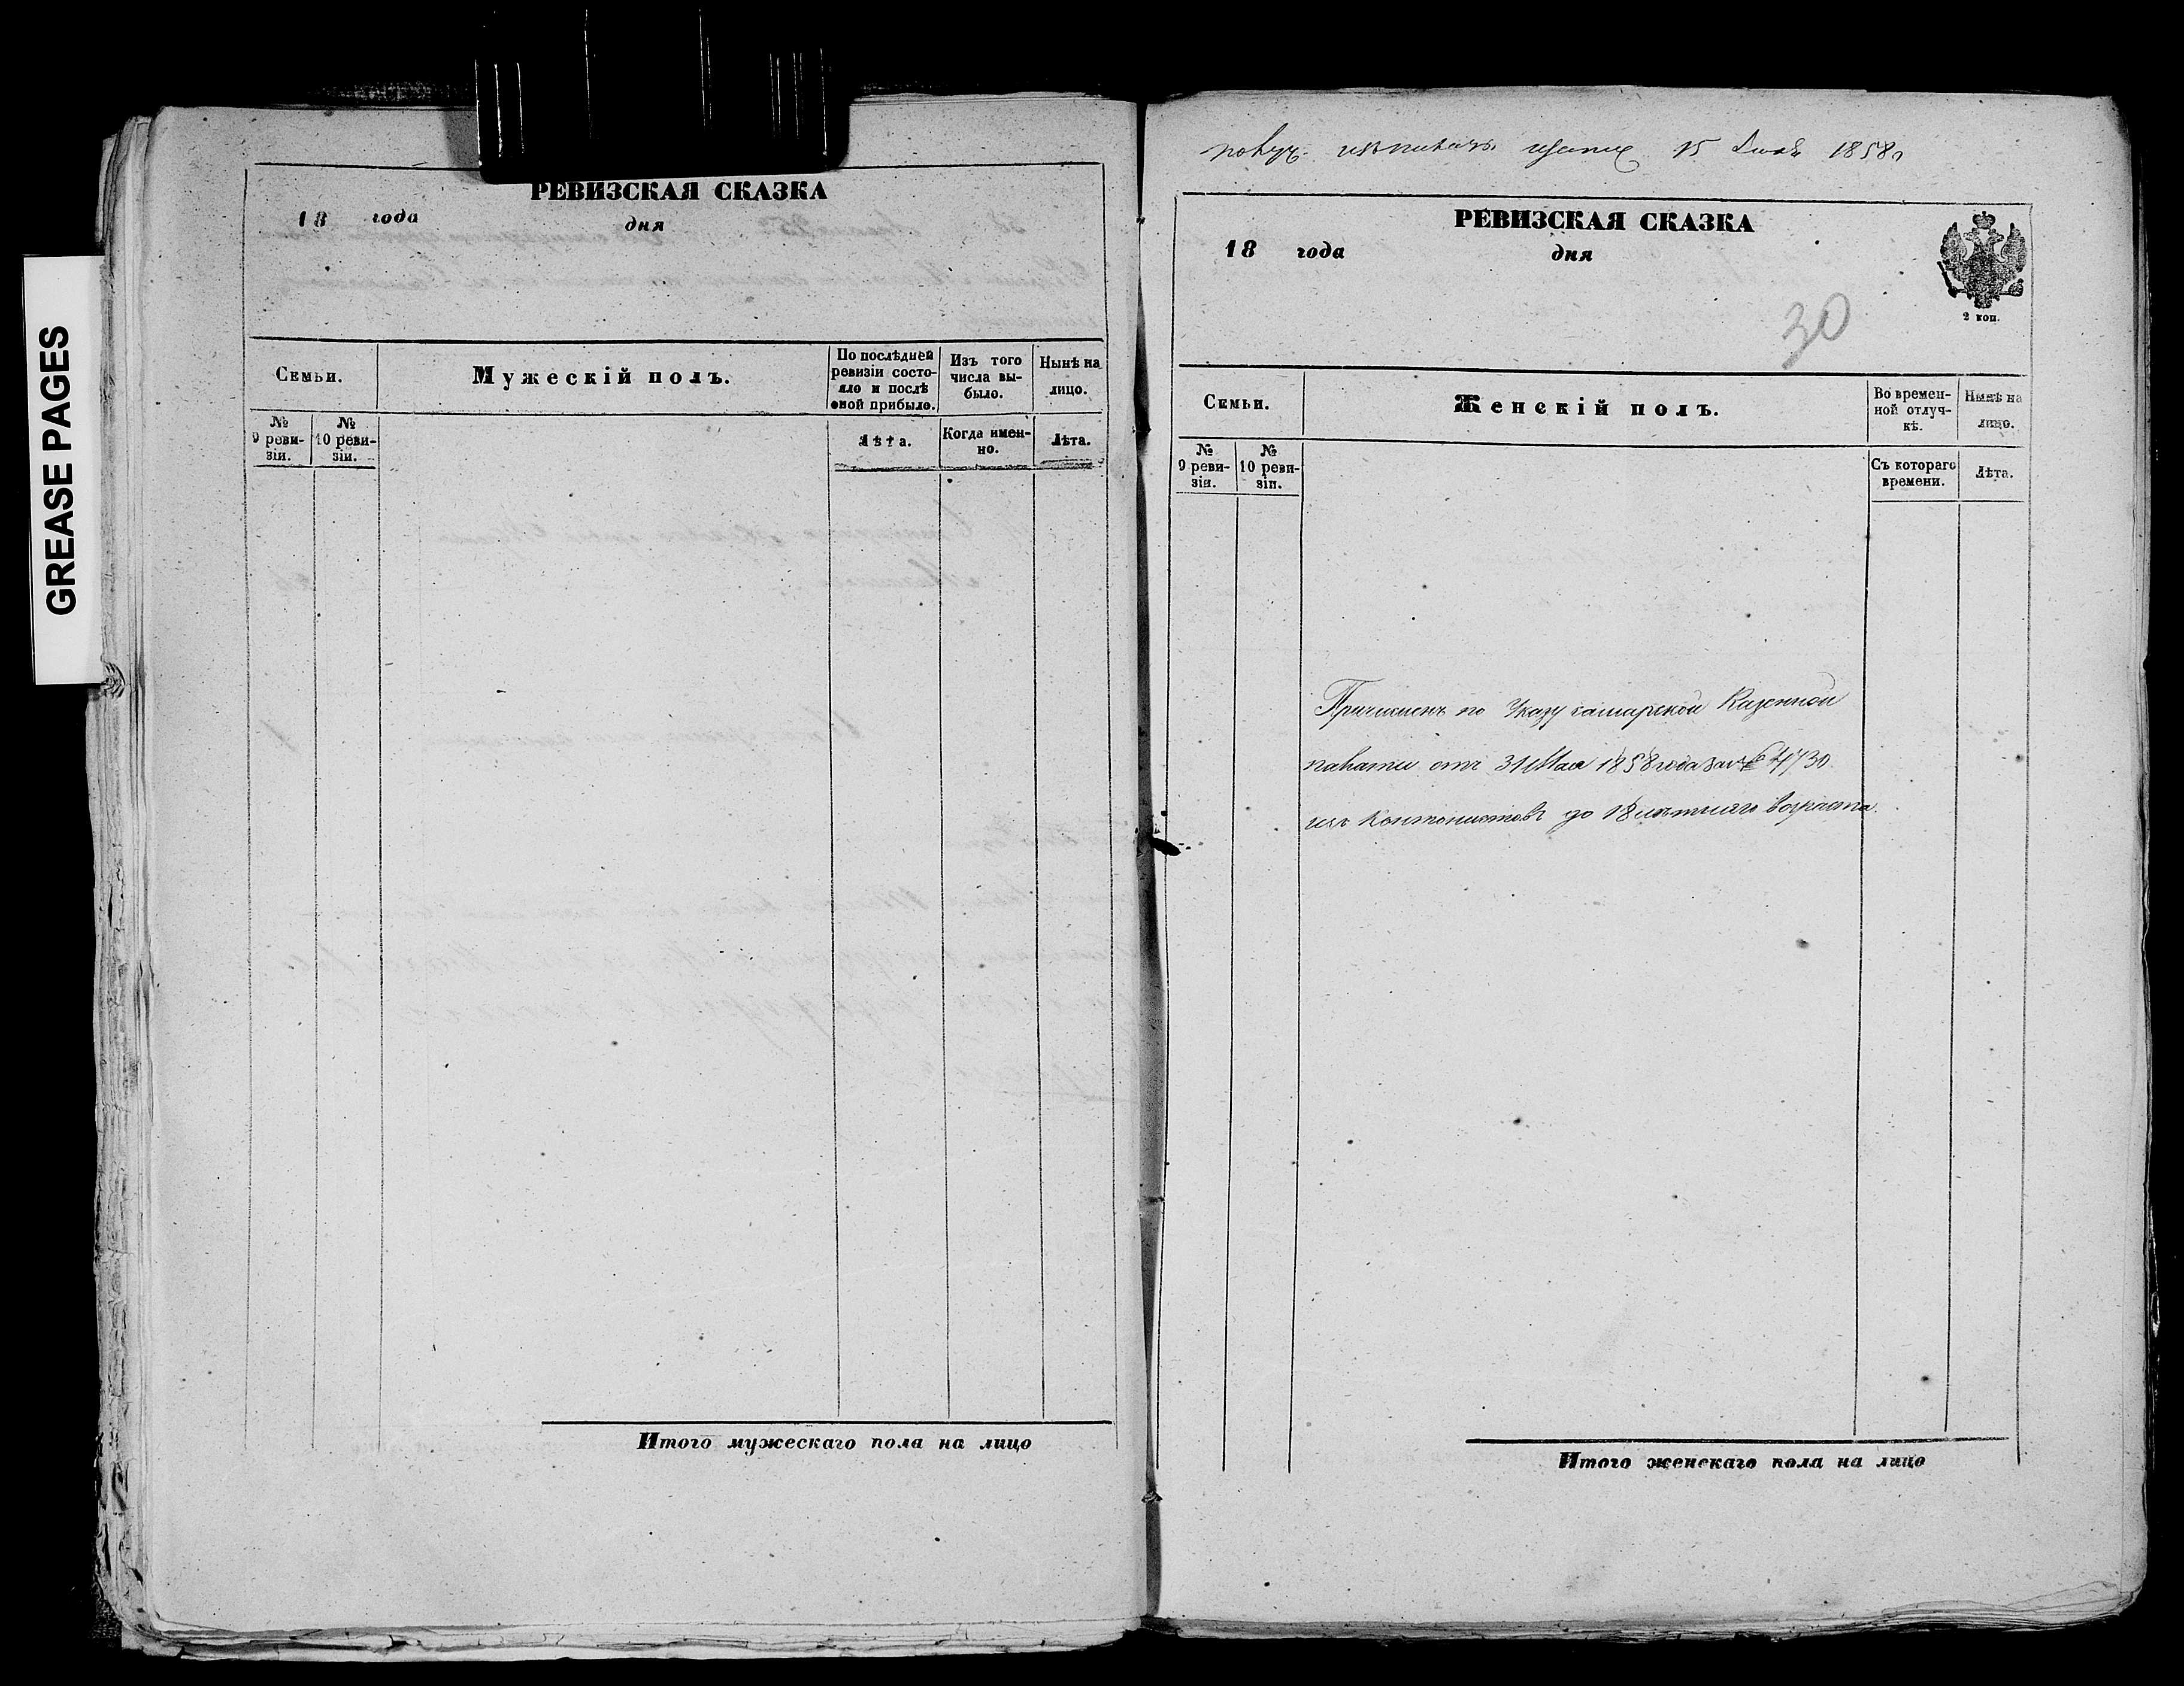 GREASE PAGES
РЕВИЗСКАЯ СКАЗКА
18 года дня
Семьи.
Мужескій полъ.
По послѣдней ревизіи состояло и послѣ оной прибыло.
Изъ того числа выбыло.
Нынѣ на лицо.
№ 9 ревизіи.
№ 10 ревизіи.
Лѣта.
Когда именно.
Лѣта.
Итого мужескаго пола на лицо
15 1858
РЕВИЗСКАЯ СКАЗКА
18 года дня
2 коп.
30
Семьи.
Женскій полъ.
Во временной отлучкѣ.
Нынѣ на лицо.
№ 9 ревизіи.
№ 10 ревизіи.
Съ котораго времени.
Лѣта.
Причисленъ по Указу самарской Казенной
палаты отъ 31 Мая 1858 года за № 4730
изъ Кантонистовъ до 18 лѣтняго возраста.
Итого женскаго пола на лицо